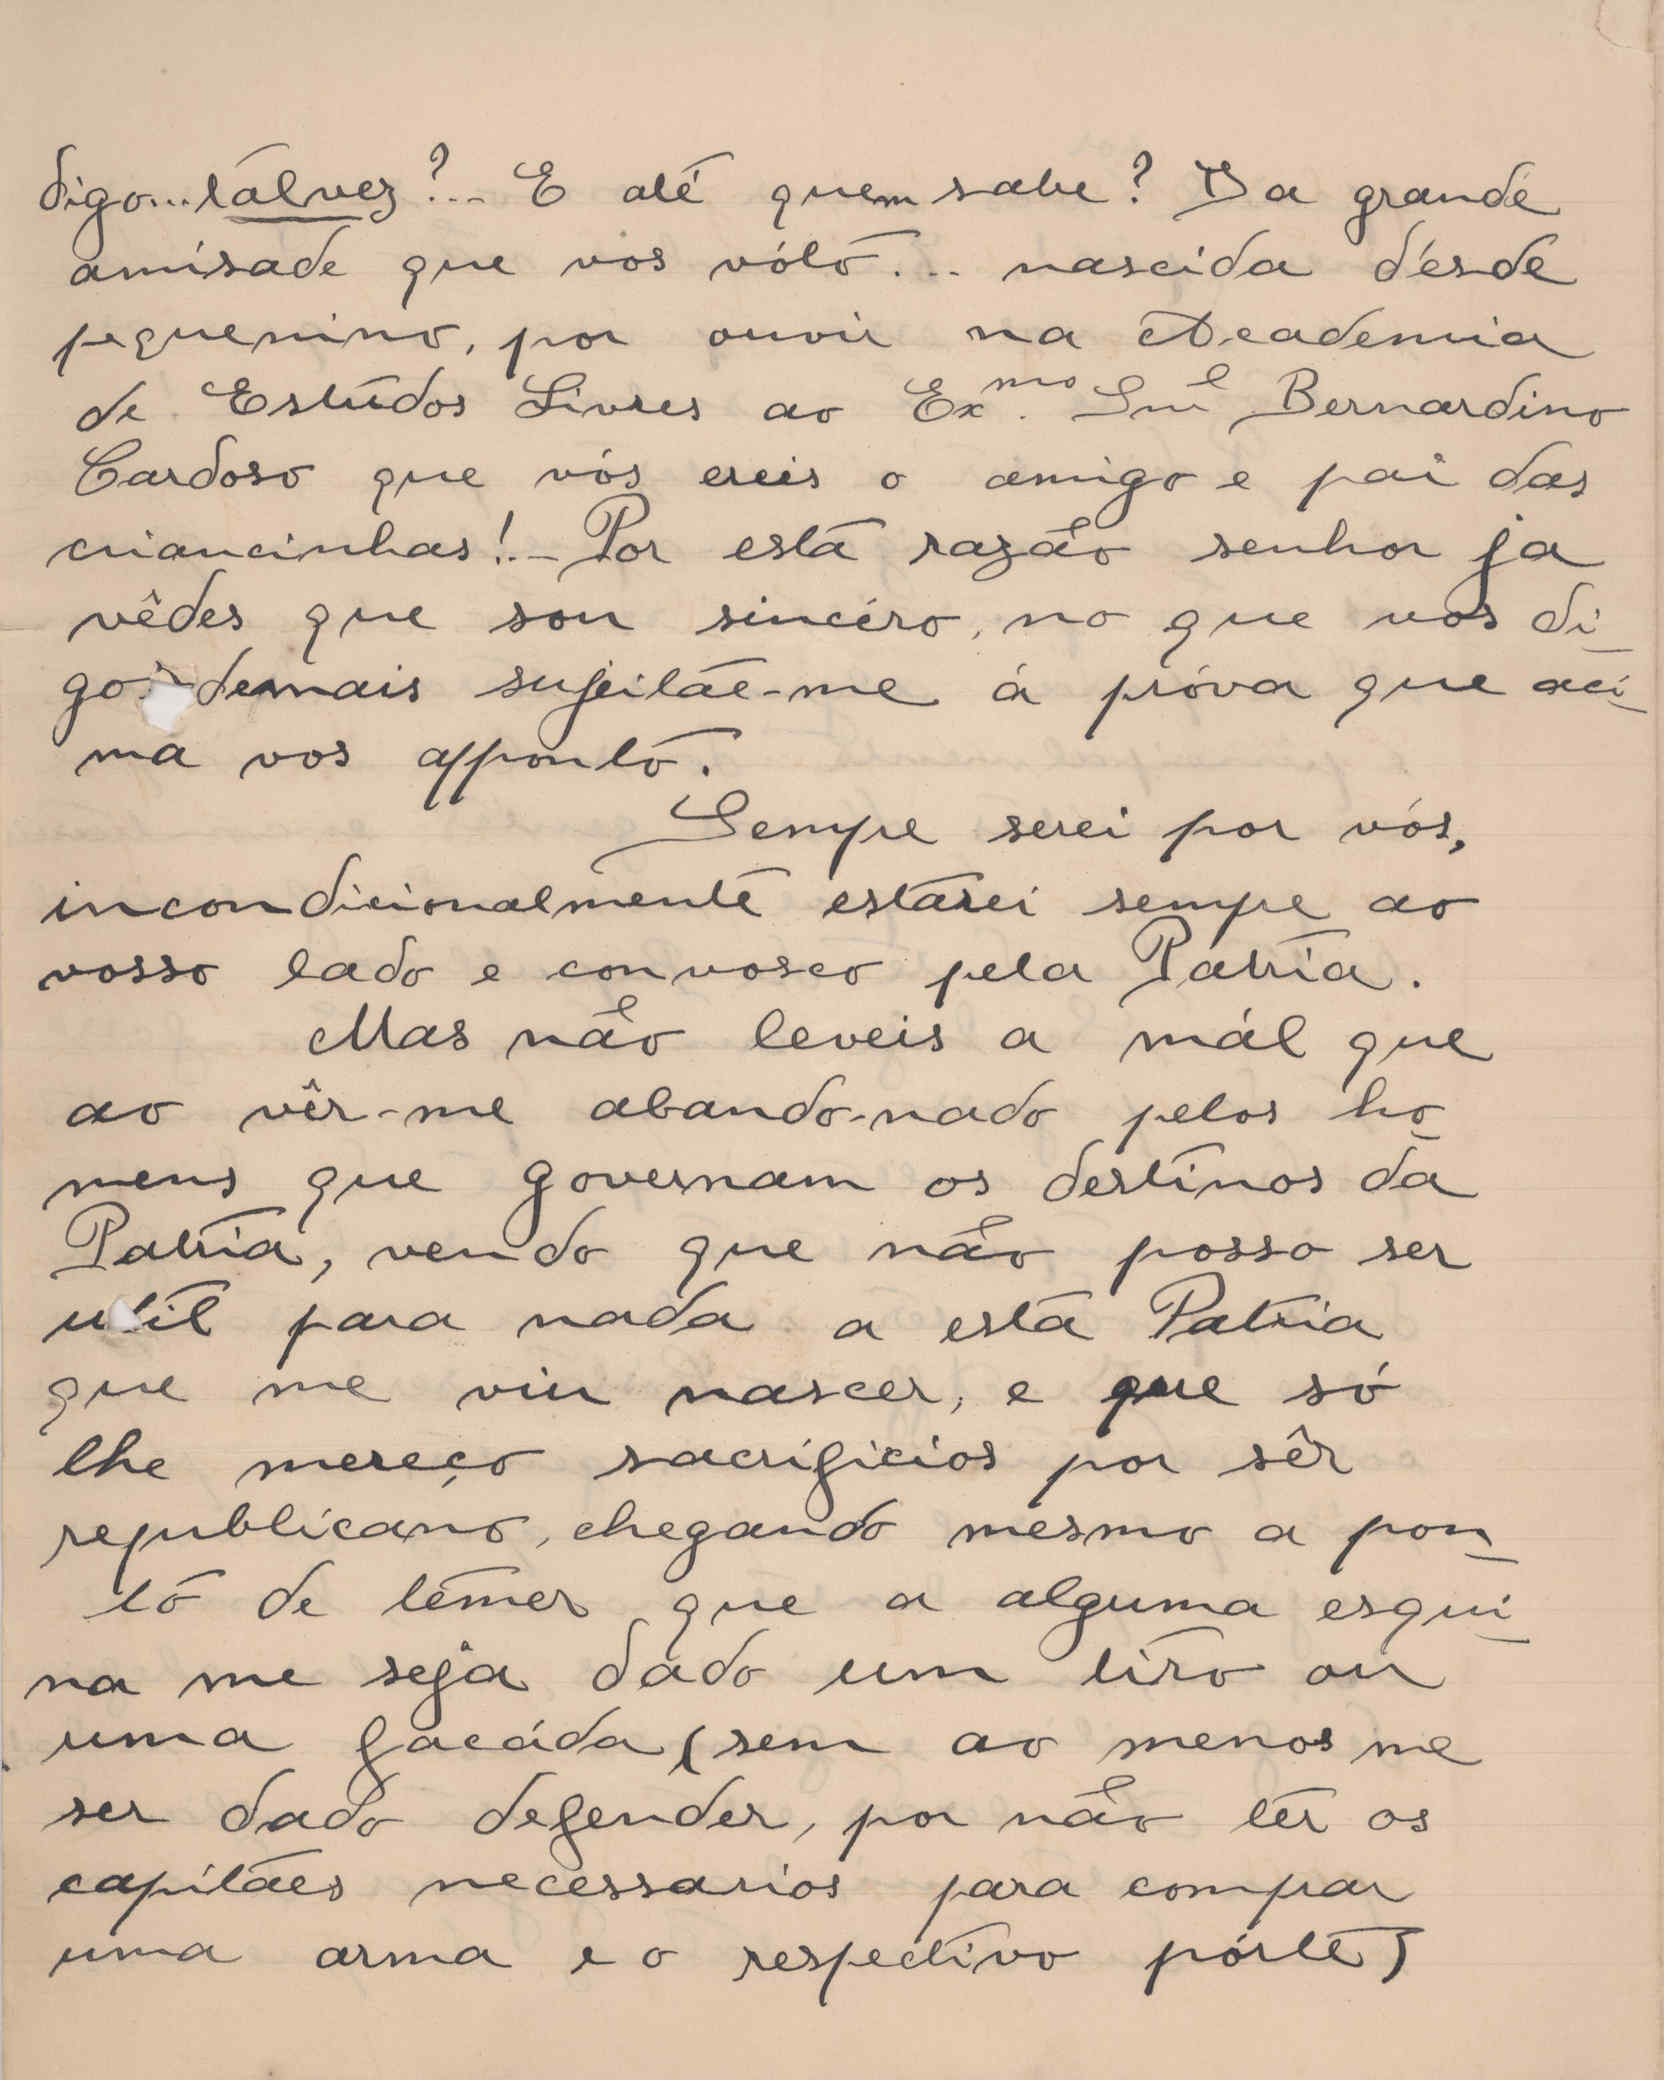 digo...talvez?... E até quem sabe? Da grande
amisade que vos vóto... nascida désde
pequenino, por ouvir na Academia
de Estudos Livres ao Ex.mo Snr Bernardino
Cardoso que vós ereis o amigo e pai das
criancinhas!_ Por esta razão senhor ja
vêdes que sou sincéro, no que vos di-
go demais sujeitáe-me á próva que aci-
ma vos apponto.
Sempe serei por vós,
incondicionalmente estarei sempe ao
vosso lado e convosco pela Patria.
Mas não leveis a mál que
ao vêr-me abando-nado pelos ho-
mens que governam os destinos da
Patria, vendo que não posso ser
util para nada a esta Patria
que me viu nascer, e que só
lhe mereço sacrificios por sêr
republicano, chegando mesmo a pon-
to de temer que a alguma esqui-
na me seja dado um tiro ou
uma facáda (sem ao menos me
ser dado defender, por não ter os
capitáes necessarios para comprar
uma arma e o respectivo pórte)